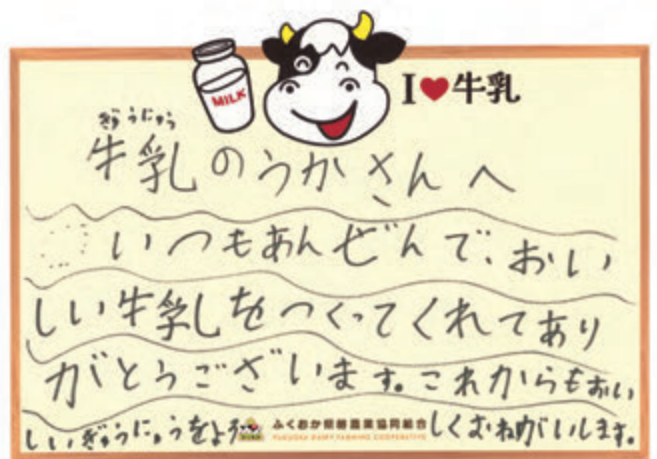 MILK
I♥牛乳
ぎゅうにゅう
牛乳のうかさんへ
いつもあんぜんで、おい
しい牛乳をつくってくれてあり
がとうございます。これからもおい
しいぎゅうにゅうをよろ
しくおねがいします。
ふくおか県酪農業協同組合
FUKUOKA DAIRY FARMING COOPERATIVE